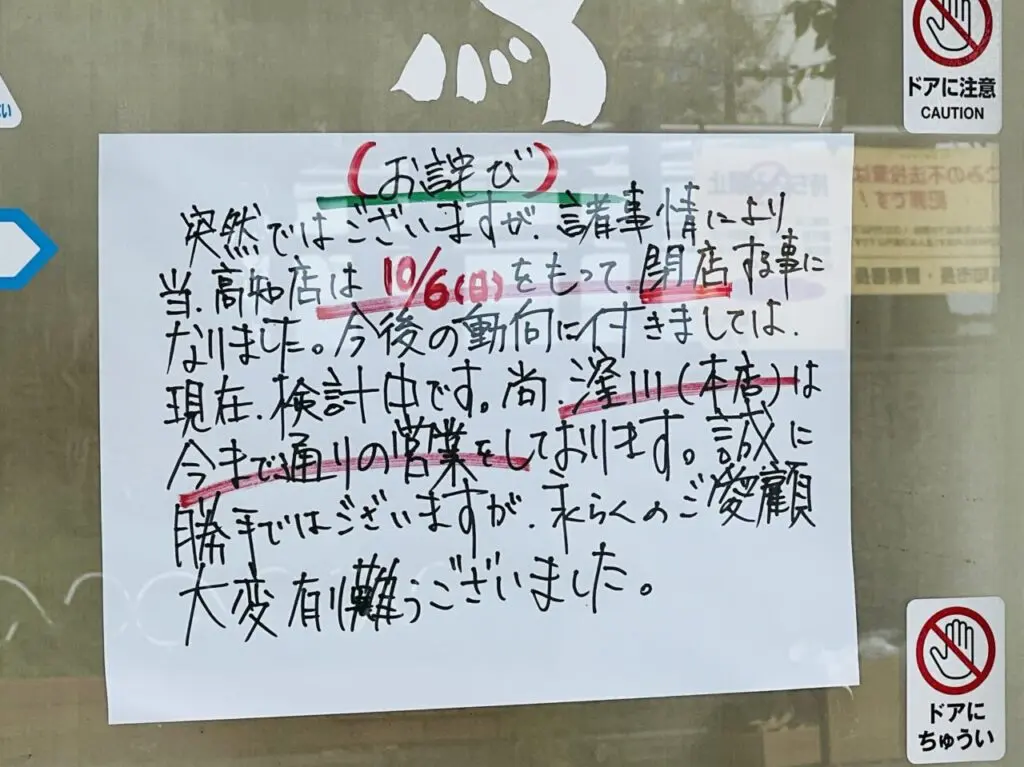 ドアに注意
CAUTION
(お詫び)
突然ではございますが、諸事情により
当、高知店は10/6(日)をもって、閉店する事に
なりました。今後の動向に付きましては、
現在、検討中です。尚、窪川(本店)は
今まで通りの営業をしております。誠に
勝手ではございますが、永らくのご愛顧
大変有り難うございました。
ごみの不法投棄は
犯罪です!
ドアに
ちゅうい